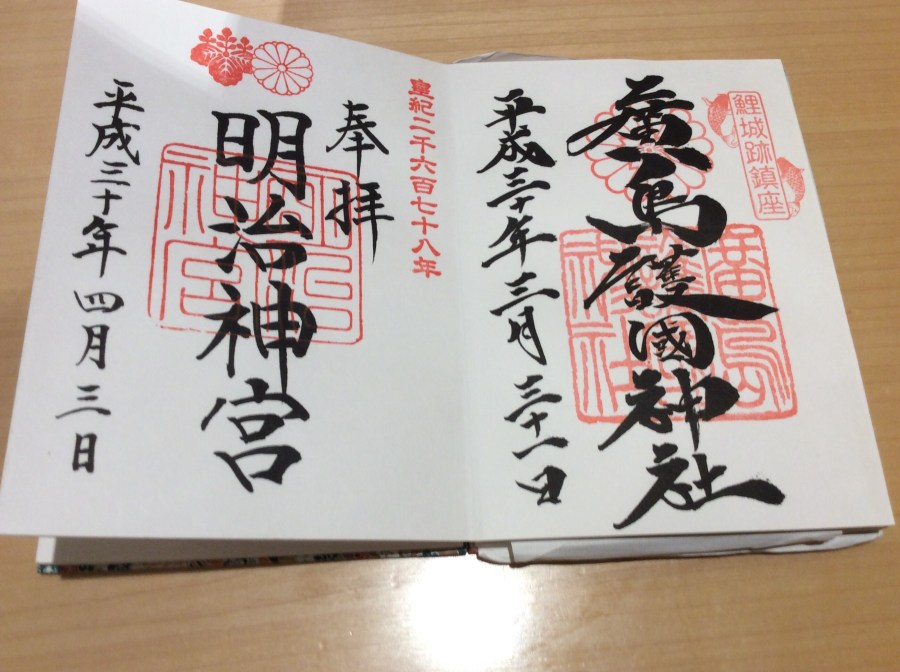 鯉城跡鎮座
廣島護國神社
平成三十年三月三十一日
皇紀二千六百七十八年
奉拝
明治神宮
平成三十年四月三日